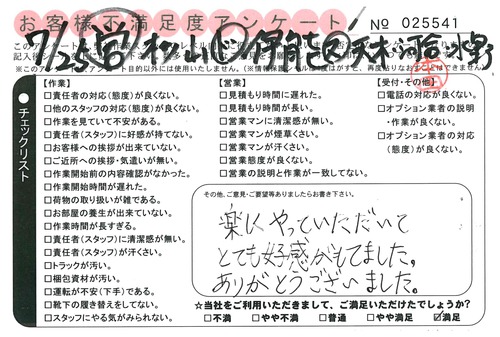 お客様不満足度アンケート
No 025541
7/25 営 松山 保能 天木・河合・水野
※このアンケート目的以外には使用いたしません。
チェックリスト
【作業】
□責任者の対応（態度）が良くない。
□他のスタッフの対応（態度）が良くない。
□作業を見ていて不安がある。
□責任者（スタッフ）に好感が持てない。
□お客様への挨拶が出来ていない。
□ご近所への挨拶・気遣いが無い。
□作業開始前の内容確認がなかった。
□作業開始時間が遅れた。
□荷物の取り扱いが雑である。
□お部屋の養生が出来ていない。
□作業時間が長すぎる。
□責任者（スタッフ）に清潔感が無い。
□責任者（スタッフ）が汗くさい。
□トラックが汚い。
□梱包資材が汚い。
□運転が不安（下手）である。
□靴下の履き替えをしてない。
□スタッフにやる気がみられない。
【営業】
□見積もり時間に遅れた。
□見積もり時間が長い。
□営業マンに清潔感が無い。
□営業マンが煙草くさい。
□営業マンが汗くさい。
□営業態度が良くない。
□営業の説明と作業が一致してない。
【受付・その他】
□電話の対応が良くない。
□オプション業者の説明
・作業が良くない。
□オプション業者の対応
（態度）が良くない。
その他、ご意見・ご要望等ありましたらお書き下さい。
楽しくやっていただいて
とても好感がもてました。
ありがとうございました。
☆当社をご利用いただきまして、ご満足いただけたでしょうか？
□不満 □やや不満 □普通 □やや満足 ☑満足